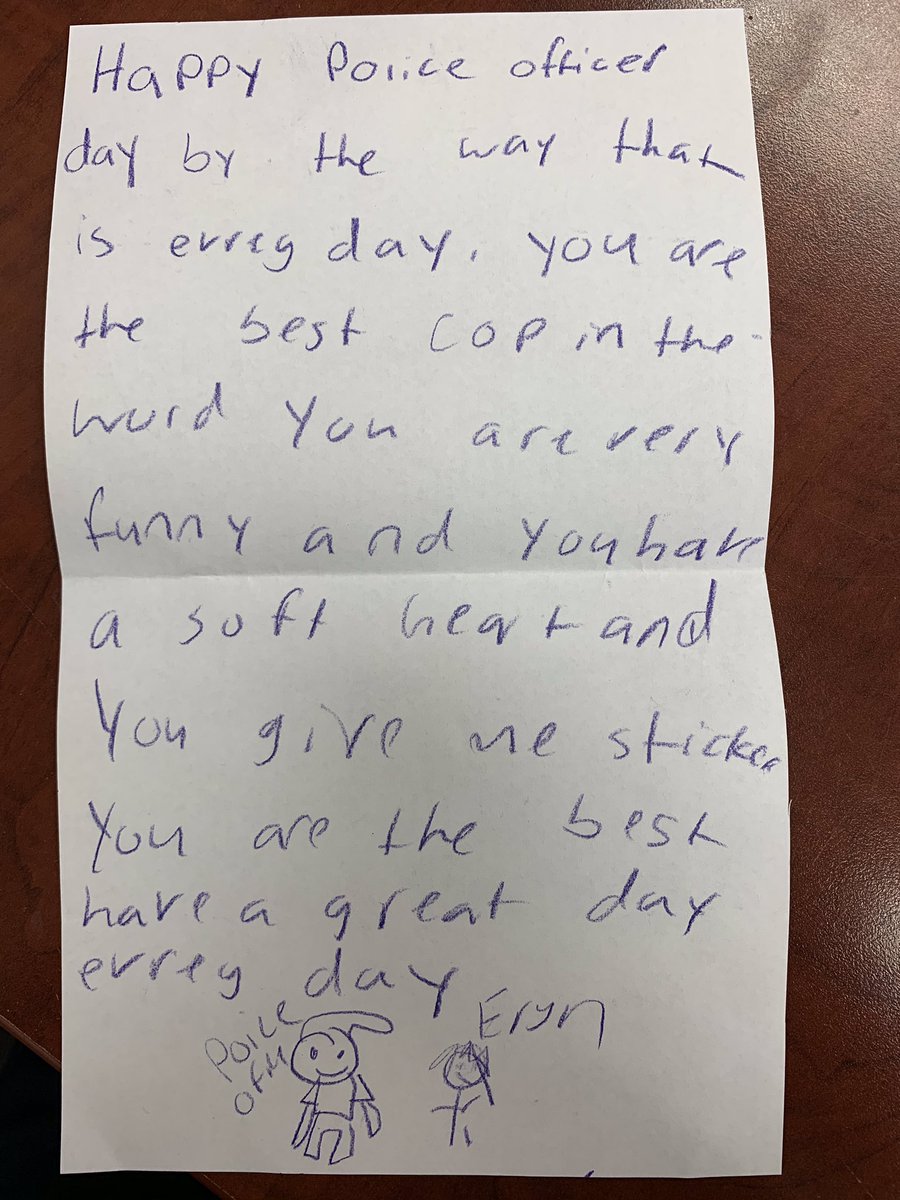 Happy Police officer
day by the way that
is errey day. you are
the best cop in the
word you are very
funny and you have
a soft heart and
you give me sticker
you are the best
have a great day
errey day
Eryn
Poice